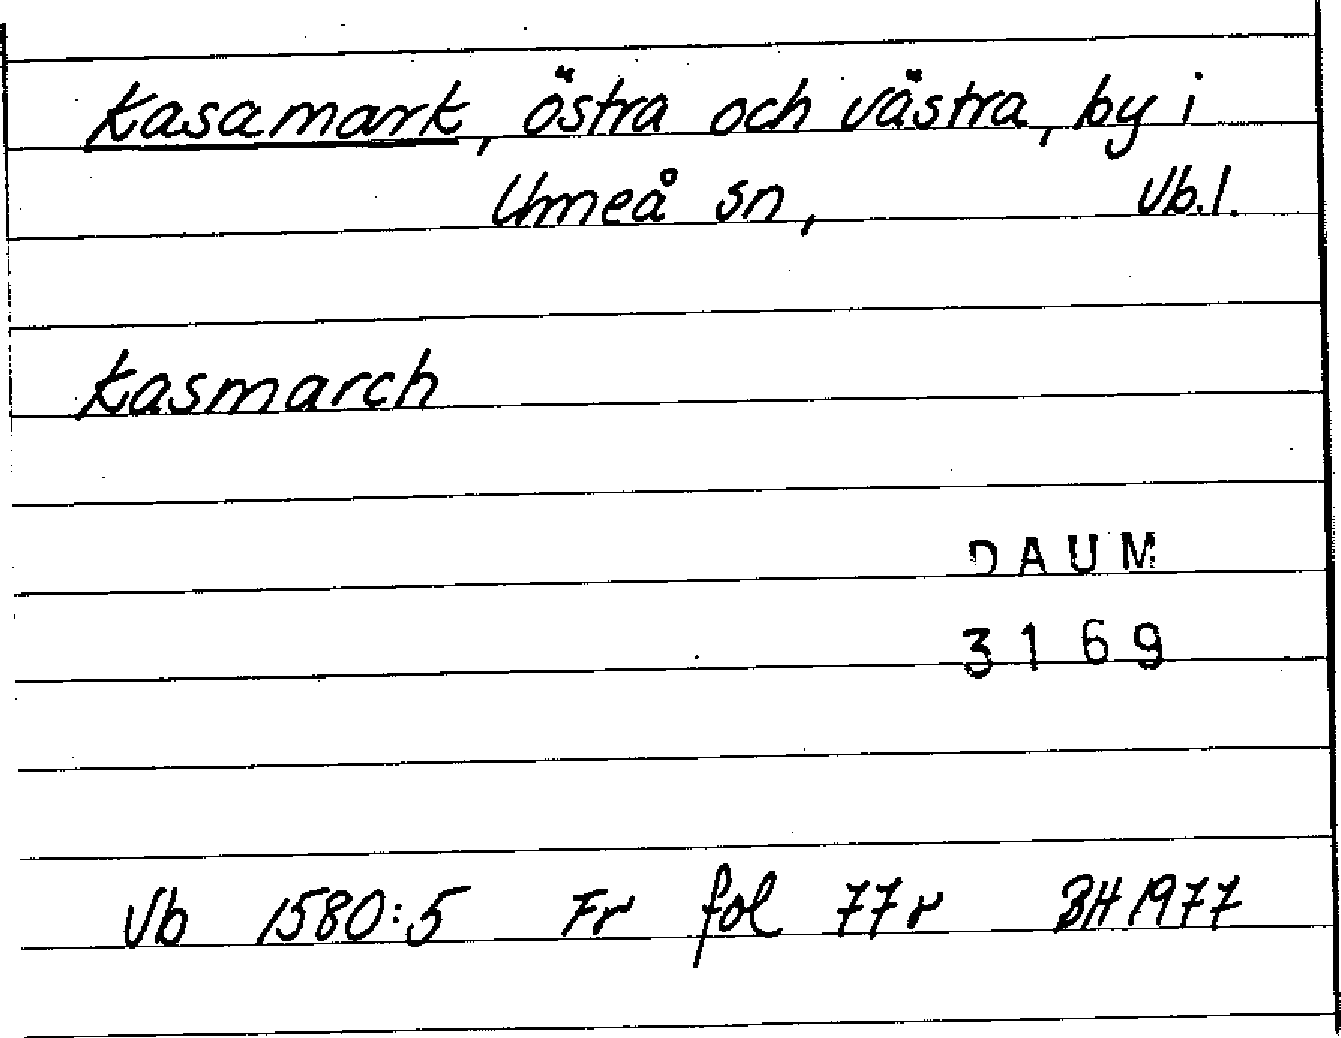 Kasamark, östra och västra, by i
Umeå sn, Vb.l.
Kasmarch
DAUM
3169
Vb 1580:5 Fr fol 77r BH 1977